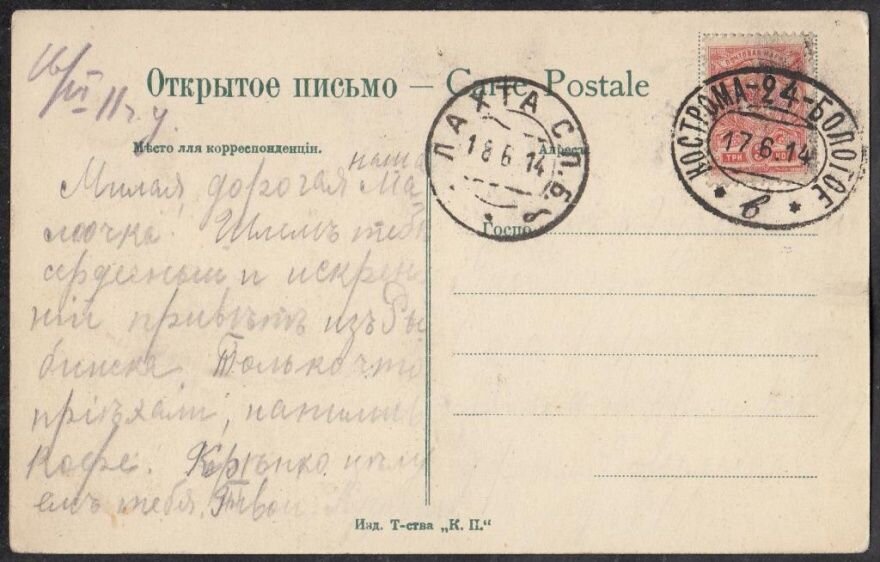 16/VI 11 ч. у.
Открытое письмо — Carte Postale
Мѣсто для корреспонденціи.
Адресъ
Милая, дорогая наша Ма-
мочка. Шлемъ тебѣ
сердечный и искрен
ній привѣтъ изъ Ры
бинска. Только что
пріѣхали, напились
кофе. Крѣпко цѣлу
емъ тебя. Твои
Госпо
ЛАХТА С.П.Б.
18 6 14
КОСТРОМА-24-БОЛОГОЕ
17 6 14
* в *
ТРИ КОП
Изд. Т-ства „К. П.“